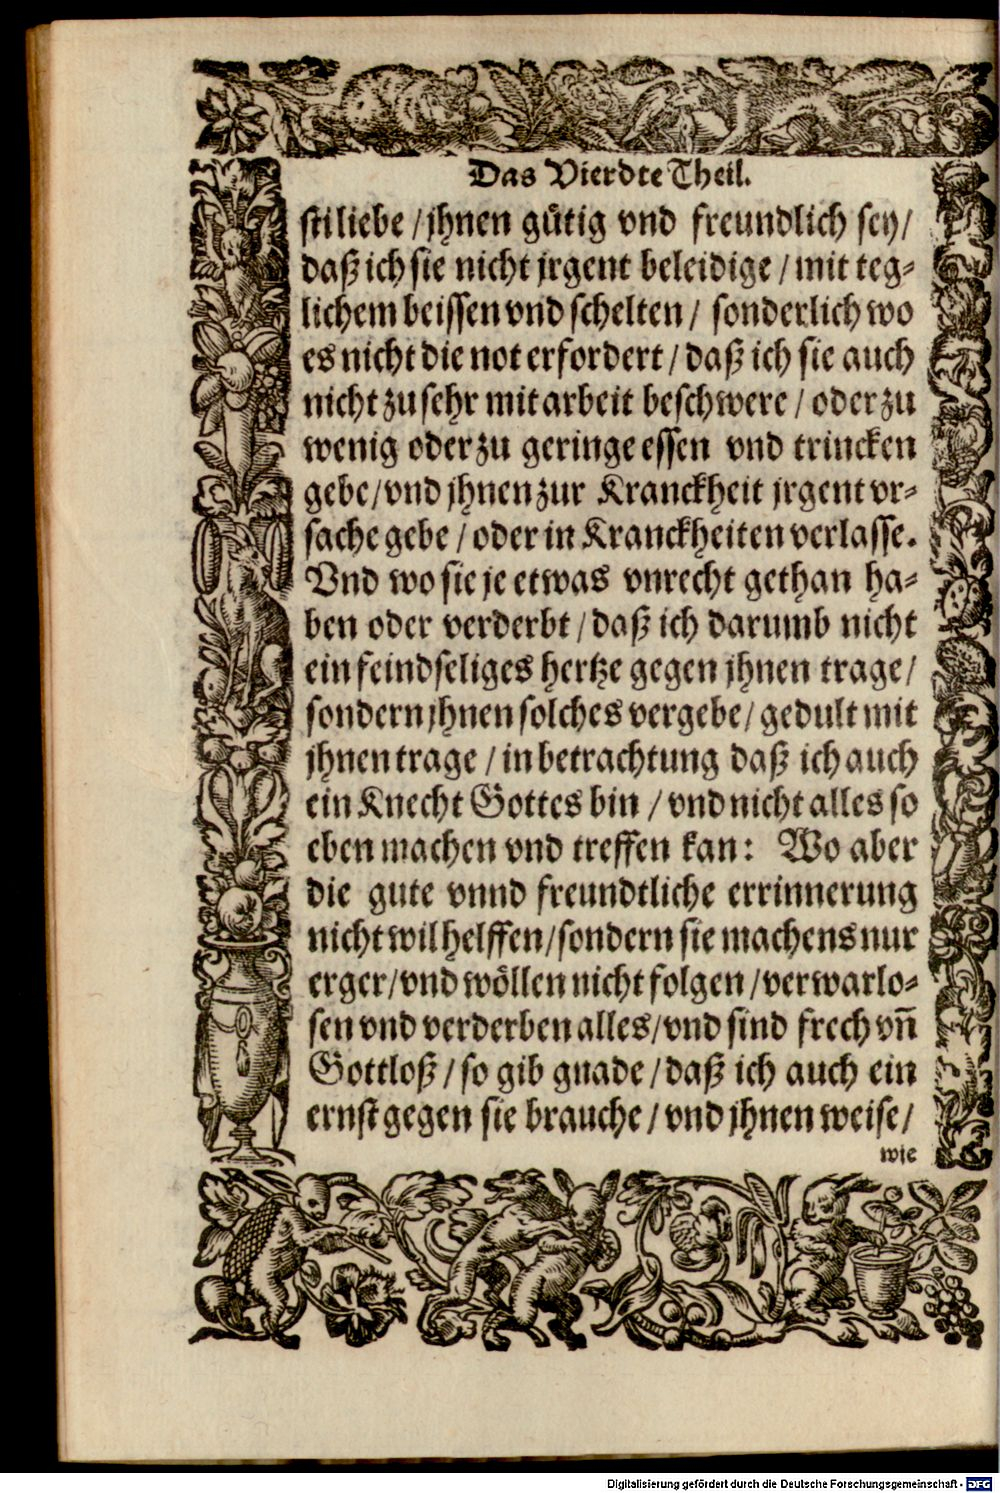 Das Vierdte Theil.
sti liebe / jhnen gütig vnd freundlich sey /
daß ich sie nicht jrgent beleidige / mit teg-
lichem beissen vnd schelten / sonderlich wo
es nicht die not erfordert / daß ich sie auch
nicht zu sehr mit arbeit beschwere / oder zu
wenig oder zu geringe essen vnd trincken
gebe / vnd jhnen zur Kranckheit jrgent vr-
sache gebe / oder in Kranckheiten verlasse.
Vnd wo sie je etwas vnrecht gethan ha-
ben oder verderbt / daß ich darumb nicht
ein feindseliges hertze gegen jhnen trage /
sondern jhnen solches vergebe / gedult mit
jhnen trage / in betrachtung daß ich auch
ein Knecht Gottes bin / vnd nicht alles so
eben machen vnd treffen kan: Wo aber
die gute vnnd freundtliche errinnerung
nicht wil helffen / sondern sie machens nur
erger / vnd wöllen nicht folgen / verwarlo-
sen vnd verderben alles / vnd sind frech vn̄
Gottloß / so gib gnade / daß ich auch ein
ernst gegen sie brauche / vnd jhnen weise /
wie
Digitalisierung gefördert durch die Deutsche Forschungsgemeinschaft - DFG